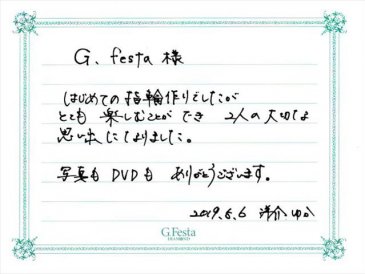 G. festa 様
はじめての指輪作りでしたが
とても 楽しむことができ 2人の大切な
思い出になりました。
写真も DVDも ありがとうございます。
2019.6.6 洋介 ゆか
G.Festa
DIAMOND